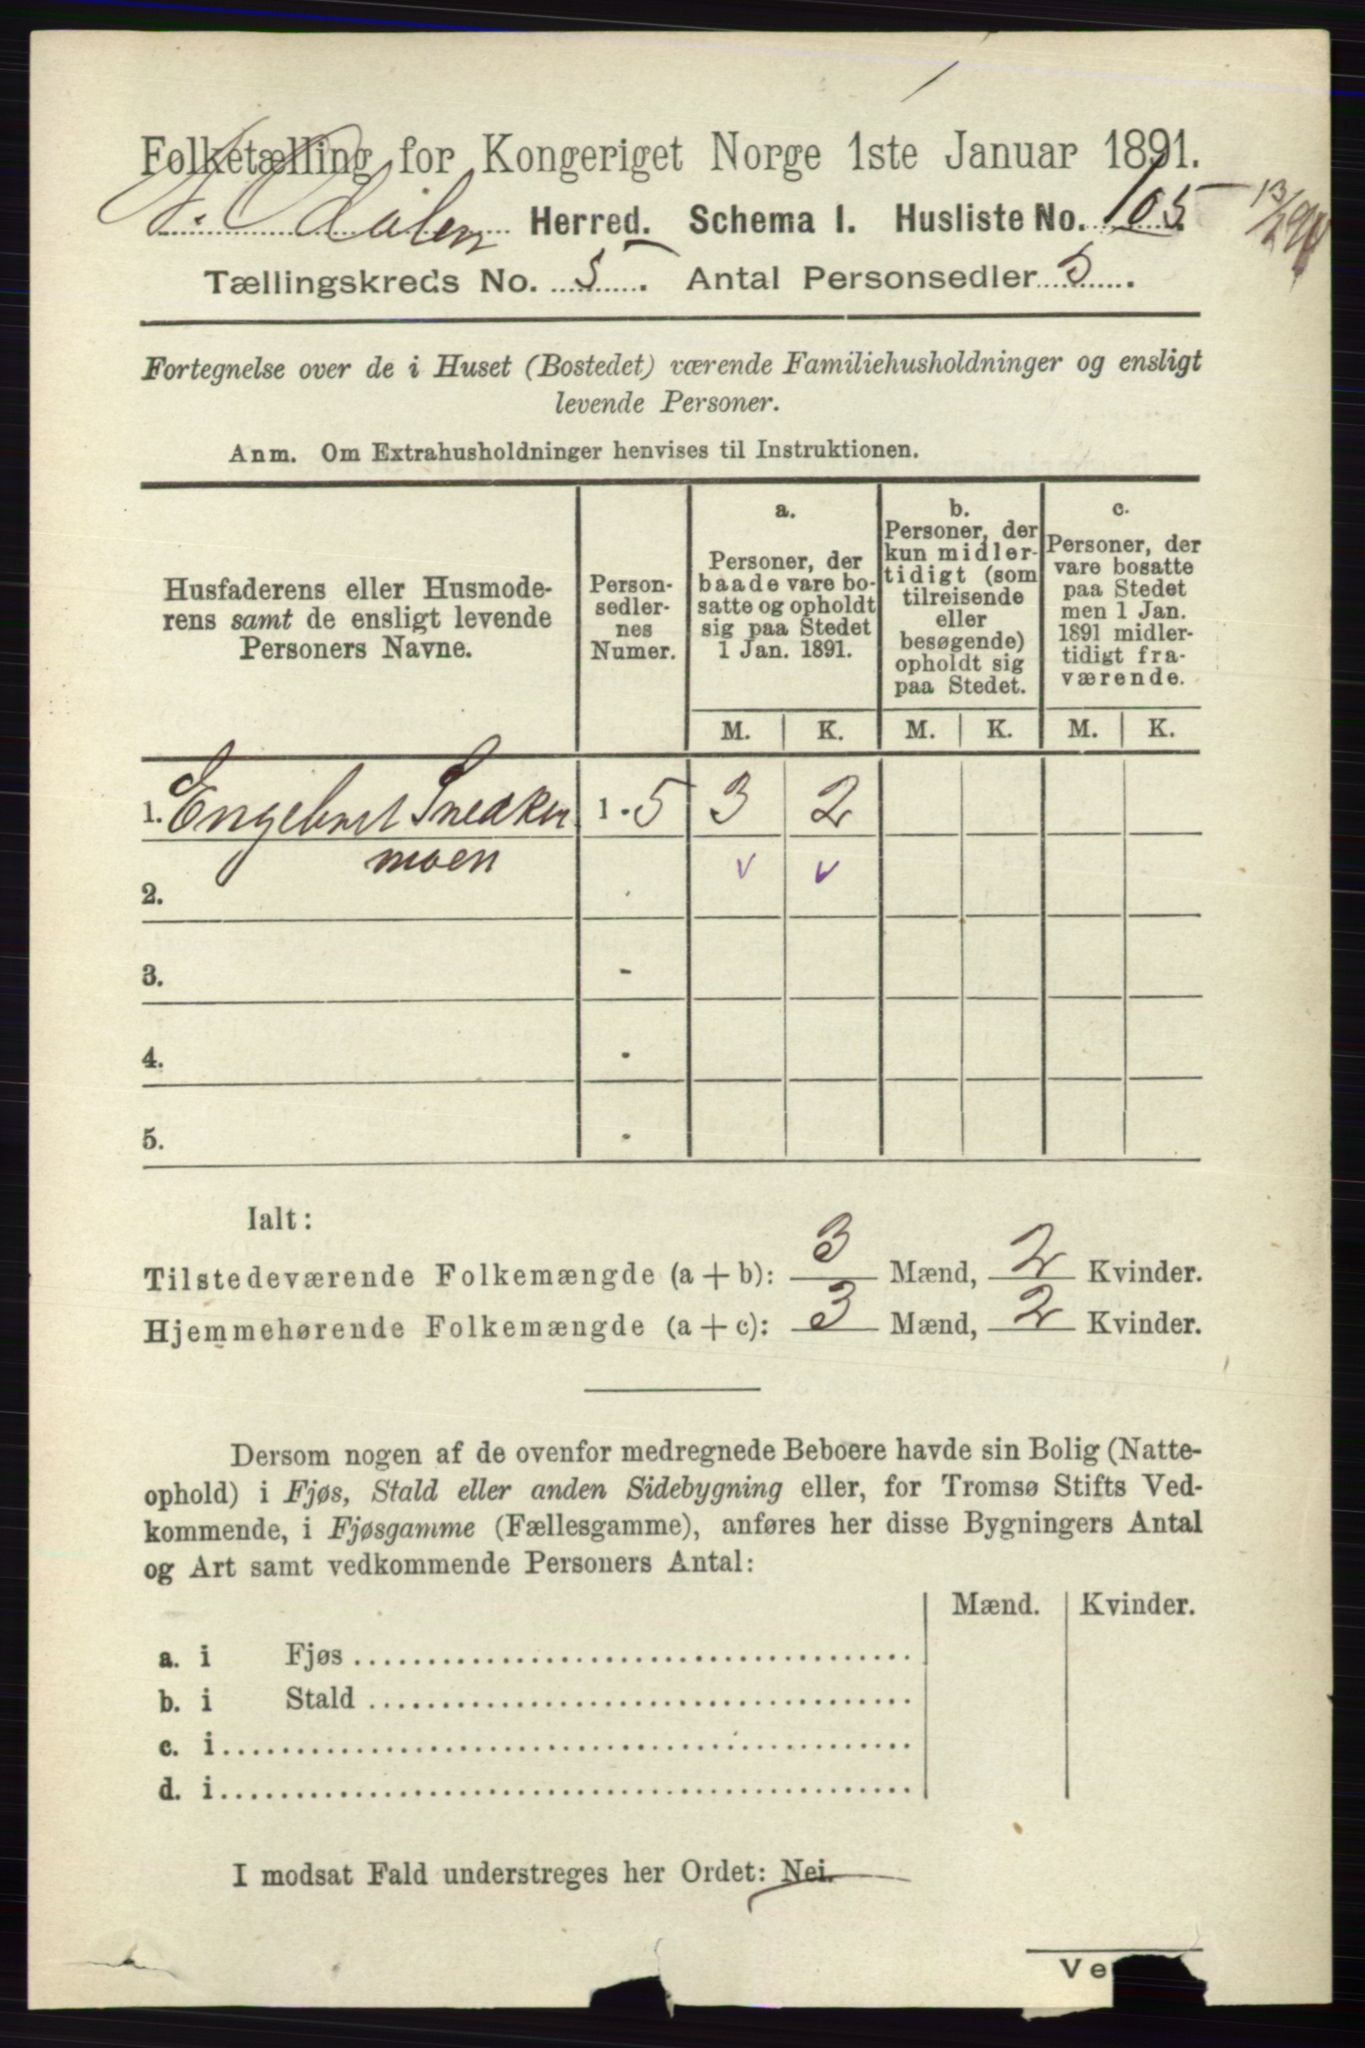 Folketælling for Kongeriget Norge 1ste Januar 1891.
Odalen Herred. Schema I. Husliste No. 105
Tællingskreds No. 5. Antal Personsedler 5.
Fortegnelse over de i Huset (Bostedet) værende Familiehusholdninger og ensligt
levende Personer.
Anm. Om Extrahusholdninger henvises til Instruktionen.
Husfaderens eller Husmode-
rens samt de ensligt levende
Personers Navne.
Person-
sedler-
nes
Numer.
a.
Personer, der
baade vare bo-
satte og opholdt
sig paa Stedet
1 Jan. 1891.
b.
Personer, der
kun midler-
tidigt (som
tilreisende
eller
besøgende)
opholdt sig
paa Stedet.
c.
Personer, der
vare bosatte
paa Stedet
men 1 Jan.
1891 midler-
tidigt fra-
værende.
M. K. M. K. M. K.
1. Engebret Sneaker 1 - 5 3 2
moen
2.
3. -
4. -
5. -
Ialt:
Tilstedeværende Folkemængde (a + b): 3 Mænd, 2 Kvinder.
Hjemmehørende Folkemængde (a + c): 3 Mænd, 2 Kvinder.
Dersom nogen af de ovenfor medregnede Beboere havde sin Bolig (Natte-
ophold) i Fjøs, Stald eller anden Sidebygning eller, for Tromsø Stifts Ved-
kommende, i Fjøsgamme (Fællesgamme), anføres her disse Bygningers Antal
og Art samt vedkommende Personers Antal:
Mænd. Kvinder.
a. i Fjøs
b. i Stald
c. i
d. i
I modsat Fald understreges her Ordet: Nei.